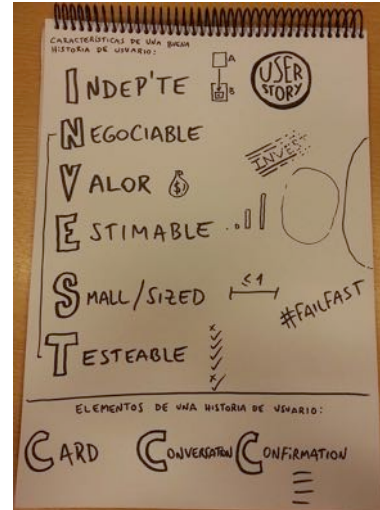 CARACTERÍSTICAS DE UNA BUENA
HISTORIA DE USUARIO:
INDEP'TE
A
B
USER
STORY
NEGOCIABLE
INVEST
VALOR $
ESTIMABLE
SMALL/SIZED
≤1
#FAILFAST
TESTEABLE
ELEMENTOS DE UNA HISTORIA DE USUARIO:
CARD CONVERSATION CONFIRMATION